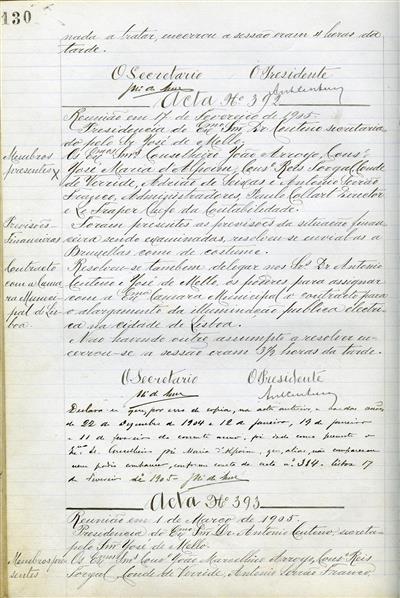 130
nada a tratar, encerrou a sessão eram 4 horas da
tarde.
O Secretario O Presidente
Acta Nº 392
Reunião em 17 de Fevereiro de 1905.
Presidencia do Exmo Snr Dr Centeno secretaria
do pelo Snr José de Mello.
Membros
presentes
Os Exmos Snrs Conselheiro João Arroyo, Consº
José Maria d'Alpoim, Consº Reis Torgal, Conde
de Verride, Adrião de Seixas e Antonio Serrão
Franco, Administradores, Paulo Collart Director
e Co Fraper Chefe da Contabilidade.
Previsões
Financeiras
Foram presentes as previsões da situação finan
ceira sendo examinadas, resolveu-se envial-as a
Bruxellas como de costume.
Contracto
com a Cama
ra Munici
pal d'Lis
boa.
Resolveu-se tambem delegar nos Snrs Dr Antonio
Centeno e José de Mello, os poderes para assignar
com a Exma Camara Municipal o contracto para
o alargamento da illuminação publica electri
ca na cidade de Lisboa.
Não havendo outro assumpto a resolver en-
cerrou-se a sessão eram 3½ horas da tarde.
O Secretario O Presidente
Declara-se que, por erro de copia, na acta anterior, e nas das
de 22 de Dezembro de 1904 e 12 de janeiro, 19 de janeiro
e 11 de fevereiro do corrente anno, foi dado como presente o
Exmo Sr. Conselheiro José Maria d'Alpoim, que, aliás, não compareceu
nem podia comparecer, conforme consta da acta nº 384. Lisboa 17
de Fevereiro de 1905
Acta Nº 393
Reunião em 1 de Março de 1905.
Presidencia do Exmo Snr Dr Antonio Centeno, secreta-
pelo Snr José de Mello.
Membros pre
sentes
Os Exmos Snrs Consº João Marcellino Arroyo, Consº Reis
Torgal, Conde de Verride, Antonio Serrão Franco,